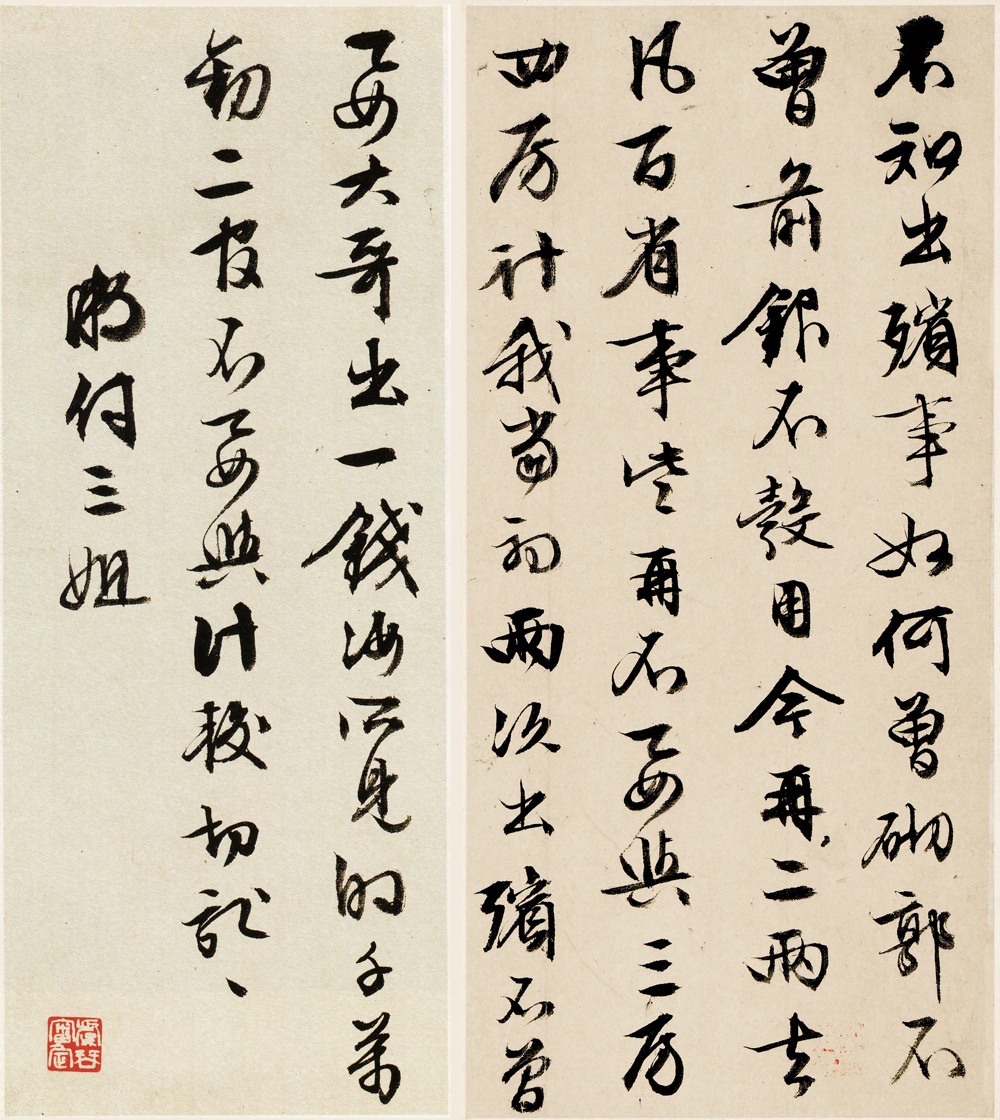 不知出殯事如何曾砌郭不
曾前銀不彀用今再二兩去
凡百省事些再不要與三房
四房計我當初兩次出殯不曾
要大哥出一錢汝所見的千萬
勸二官不要與計較切記、、
付三姐
虞琴審定